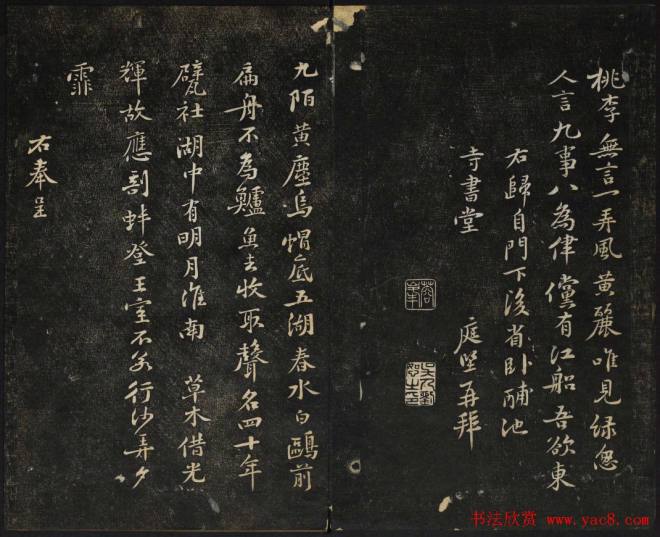 桃李無言一再風黃麗唯見緑怱
人言九事八為律儻有江船吾欲東
右歸自門下後省卧酺池
寺書堂
庭堅再拜
九陌黃塵烏帽底五湖春水白鷗前
扁舟不為鱸魚去收取聲名四十年
甓社湖中有明月淮南草木借光
輝故應剖蚌登王室不若行沙弄夕
霏
右奉呈
书法欣赏 www.yac8.com